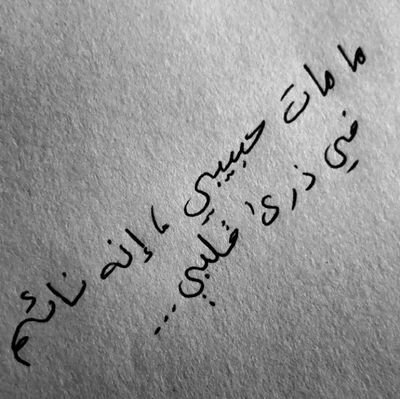 ما مات حبيبي ، إنه نائم
في ذرى قلبي...